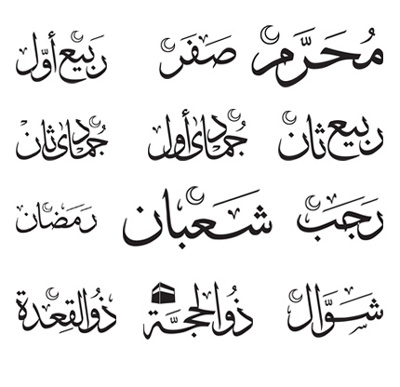 مُحَرَّم صَفَر رَبيع أوّل
رَبيع ثان جُمادى أول جُمادى ثان
رَجَب شَعبان رَمَضان
شَوّال ذُو الحجّة ذُو القِعدة